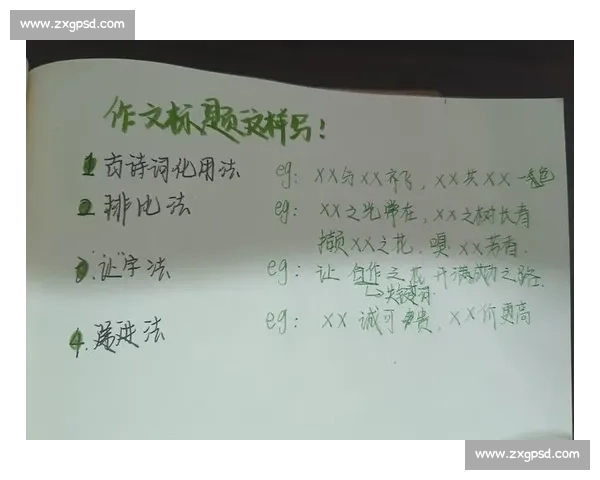 www.zxgpsd.com
作文标题这样写!
1 古诗词化用法 eg: XX与XX齐飞, XX共XX一色
2 排比法 eg: XX之光常在, XX之树长春
撷XX之花, 嗅XX芳香.
3."让"字法 eg: 让自作之花开满成功之路.
↳关键词
4.递进法 eg: XX诚可贵, XX价更高
www.zxgpsd.com